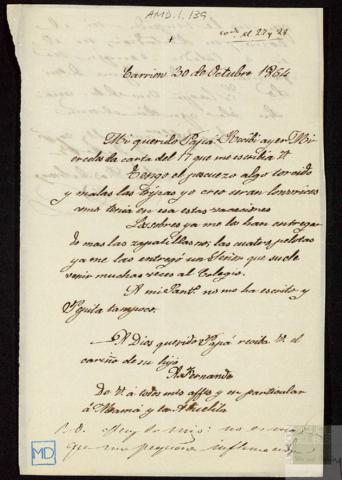 AMD.1.139
con.ⁿ el 27 y 28
Carrion 30 de Octubre 1864
Mi querido Papá: Recibi ayer Mi
ercoles la carta del 17 que me escribia V.
Tengo el pescuezo algo torcido
y malas las tripas yo creo seran lombrices
como tenia en esa estas vacaciones
Los sobres ya me los han entrega
do mas las zapatillas no; las cuatro pelotas
ya me las entregó un Señor que suele
venir muchas veces al Colegio.
A mi no me ha escrito y
Pepita tampoco.
A Dios querido Papá reciba V. el
cariño de su hijo
Fernando
De V. á todos mis affos y en particular
á Mamá y la Abuelita
P. D. muy Sr mio: no es mas
que una pequeña
MD